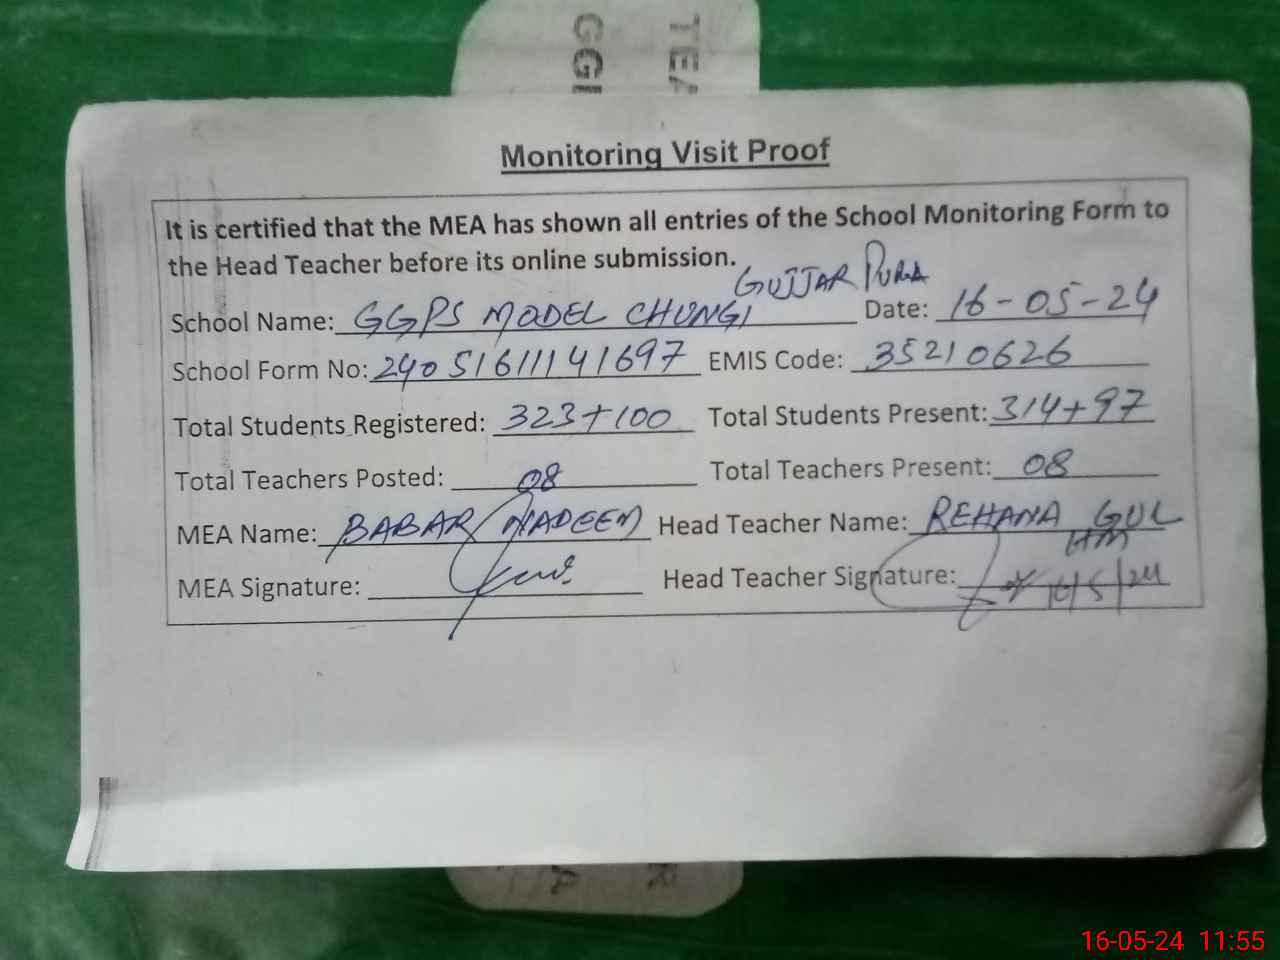 TEA
GGI
Monitoring Visit Proof
It is certified that the MEA has shown all entries of the School Monitoring Form to
the Head Teacher before its online submission.
School Name: GGPS MODEL CHUNGI GUJJAR PURA Date: 16-05-24
School Form No: 24051611141697 EMIS Code: 35210626
Total Students Registered: 323+100 Total Students Present: 314+97
Total Teachers Posted: 08 Total Teachers Present: 08
MEA Name: BABAR NADEEM Head Teacher Name: REHANA GUL
HM
MEA Signature: Head Teacher Signature: 16/5/24
R
A
16-05-24 11:55